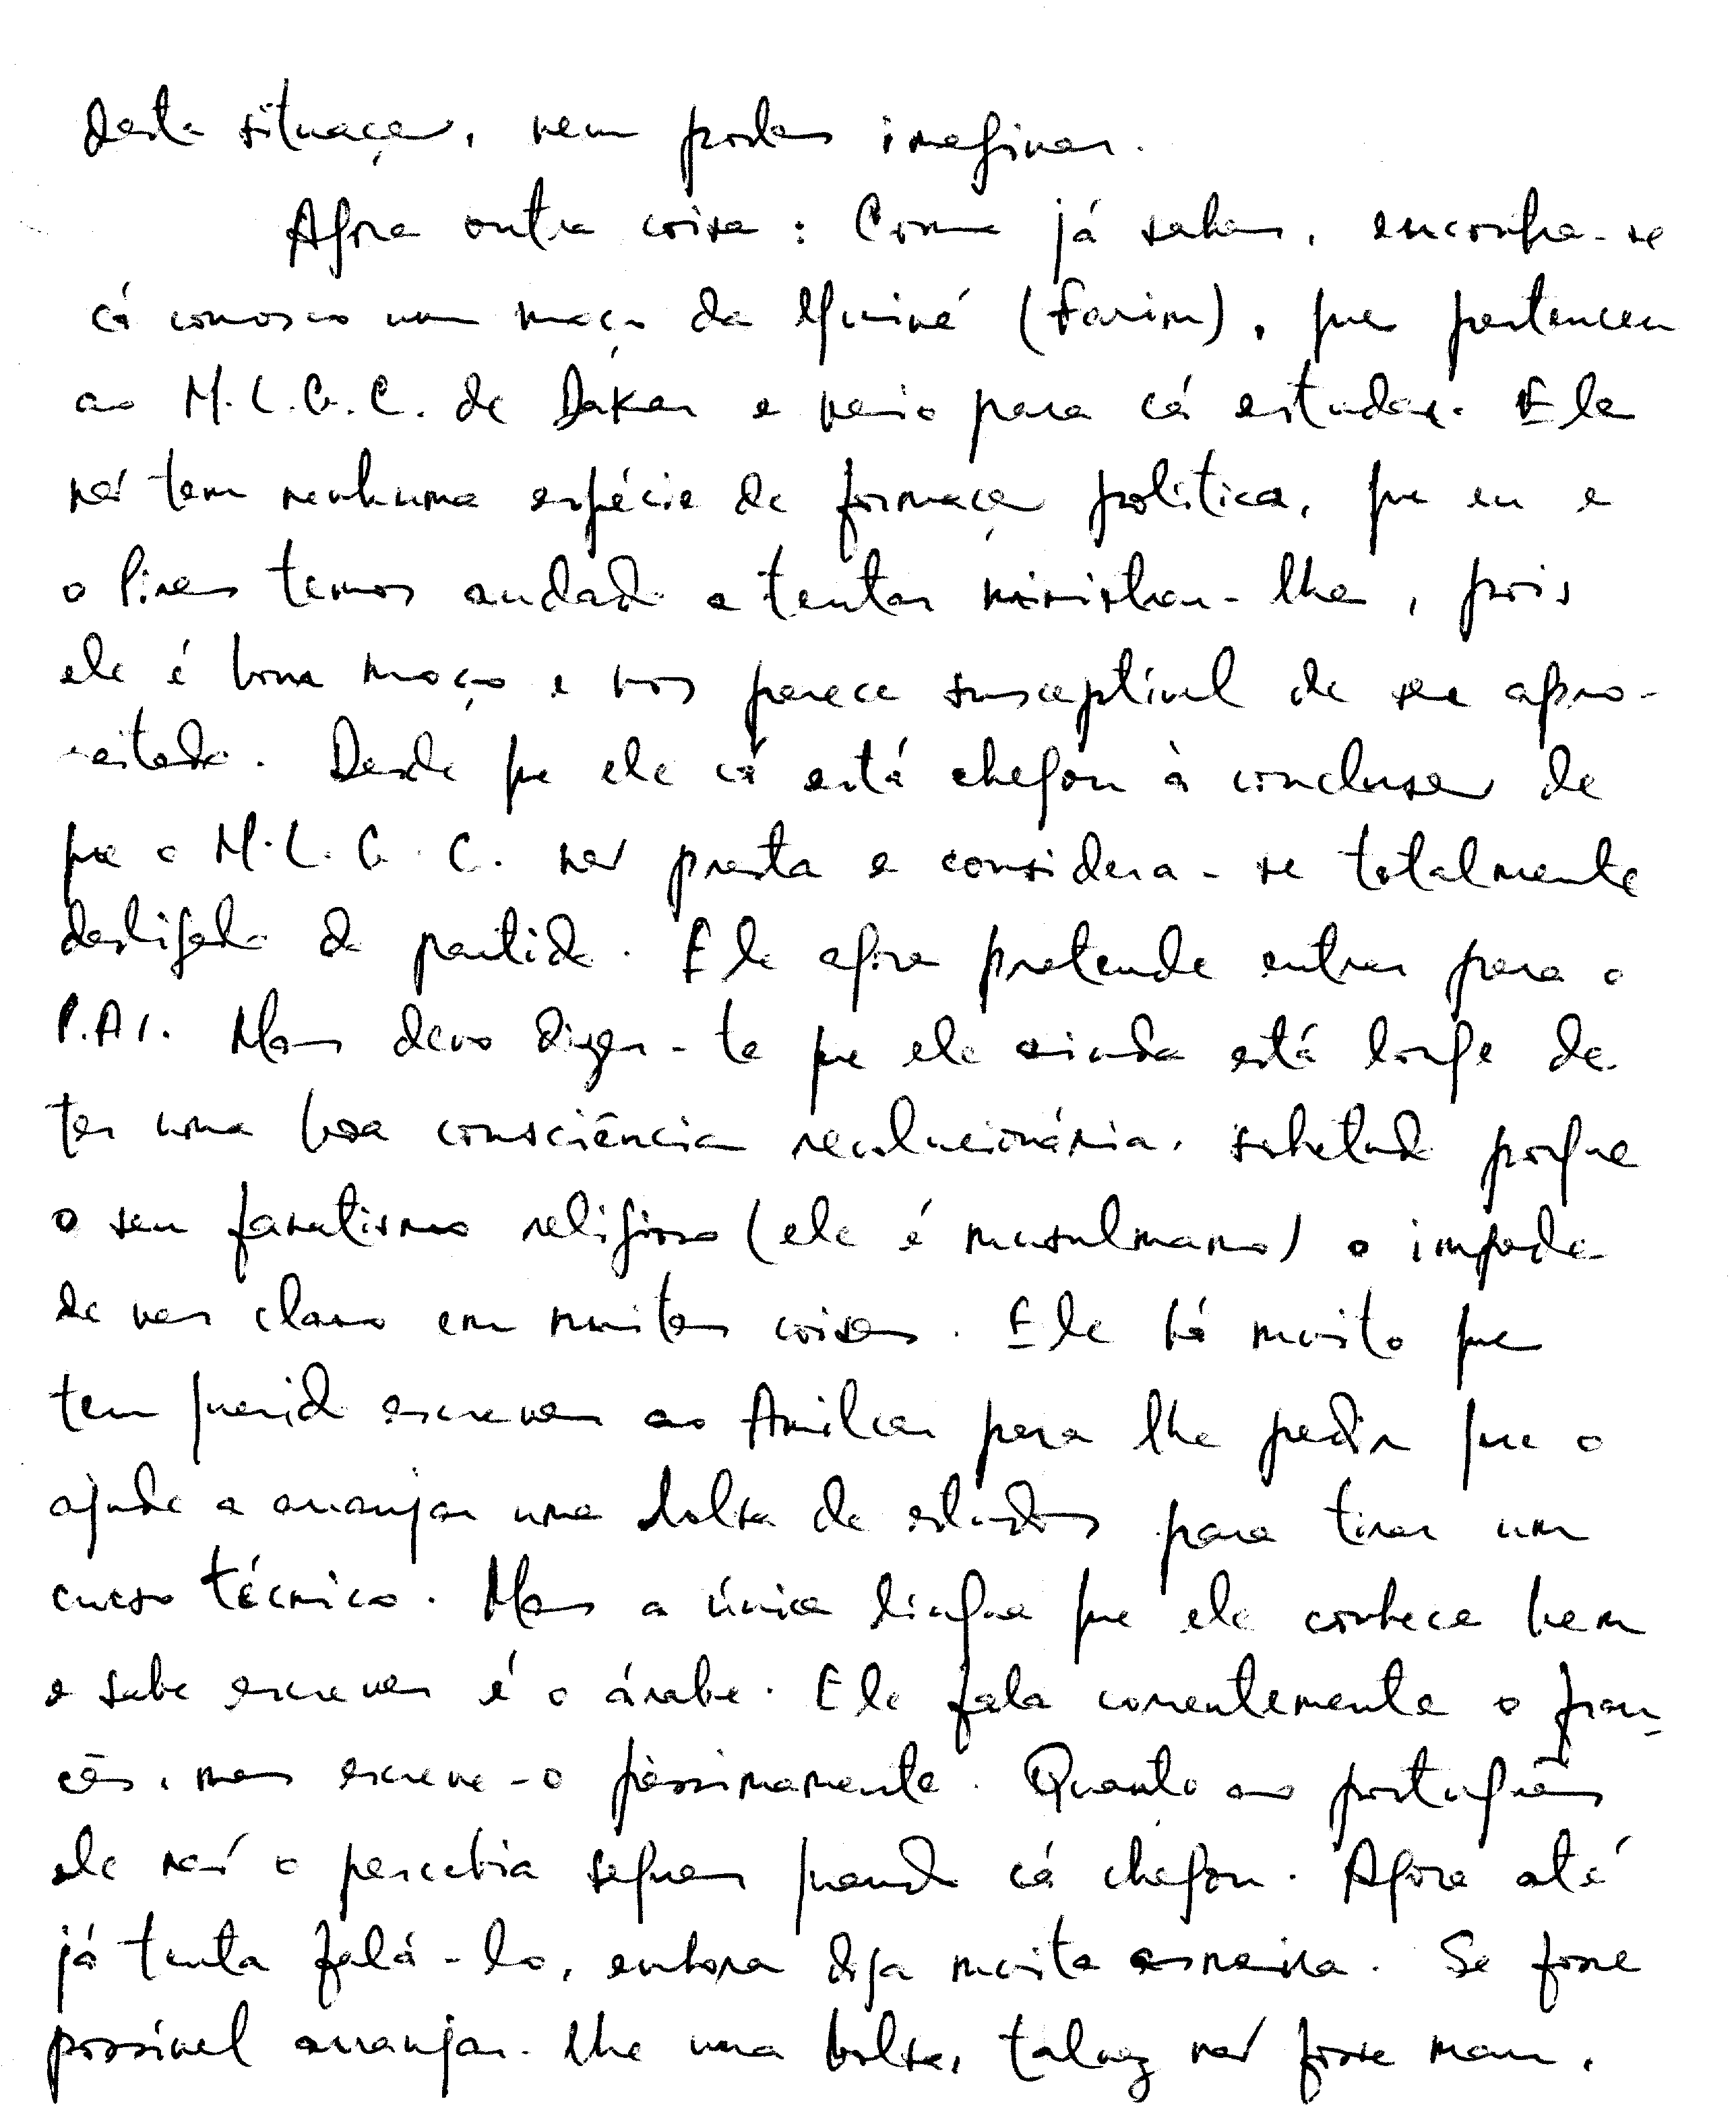 desta situação, nem podes imaginar.
Agora outra coisa: Como já sabes, encontra-se
cá conosco um moço da Guiné (Farim), que pertenceu
ao M.L.G.C. de Dakar e veio para cá estudar. Ele
não tem nenhuma espécie de formação política, que eu e
o Pires temos andado a tentar ministrar-lhe, pois
ele é bom moço e nos parece susceptível de ser apro-
veitado. Desde que ele cá está chegou à conclusão de
que o M.L.G.C. não presta e considera-se totalmente
desligado do partido. Ele agora pretende entrar para o
P.A.I. Mas devo dizer-te que ele ainda está longe de
ter uma boa consciência revolucionária, sobretudo porque
o seu fanatismo religioso (ele é musulmano) o impede
de ver claro em muitas coisas. Ele há muito que
tem querido escrever ao Amilcar para lhe pedir que o
ajude a arranjar uma bolsa de estudos para tirar um
curso técnico. Mas a única língua que ele conhece bem
e sabe escrever é o árabe. Ele fala correntemente o fran-
cês, mas escreve-o péssimamente. Quanto ao português
ele não o percebia sequer quando cá chegou. Agora até
já tenta falá-lo, embora diga muita asneira. Se fosse
possível arranjar-lhe uma bolsa, talvez não fosse mau.